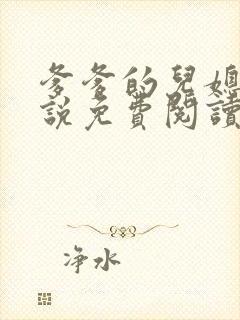 爹爹的兒媳
說免費閱讀
净水